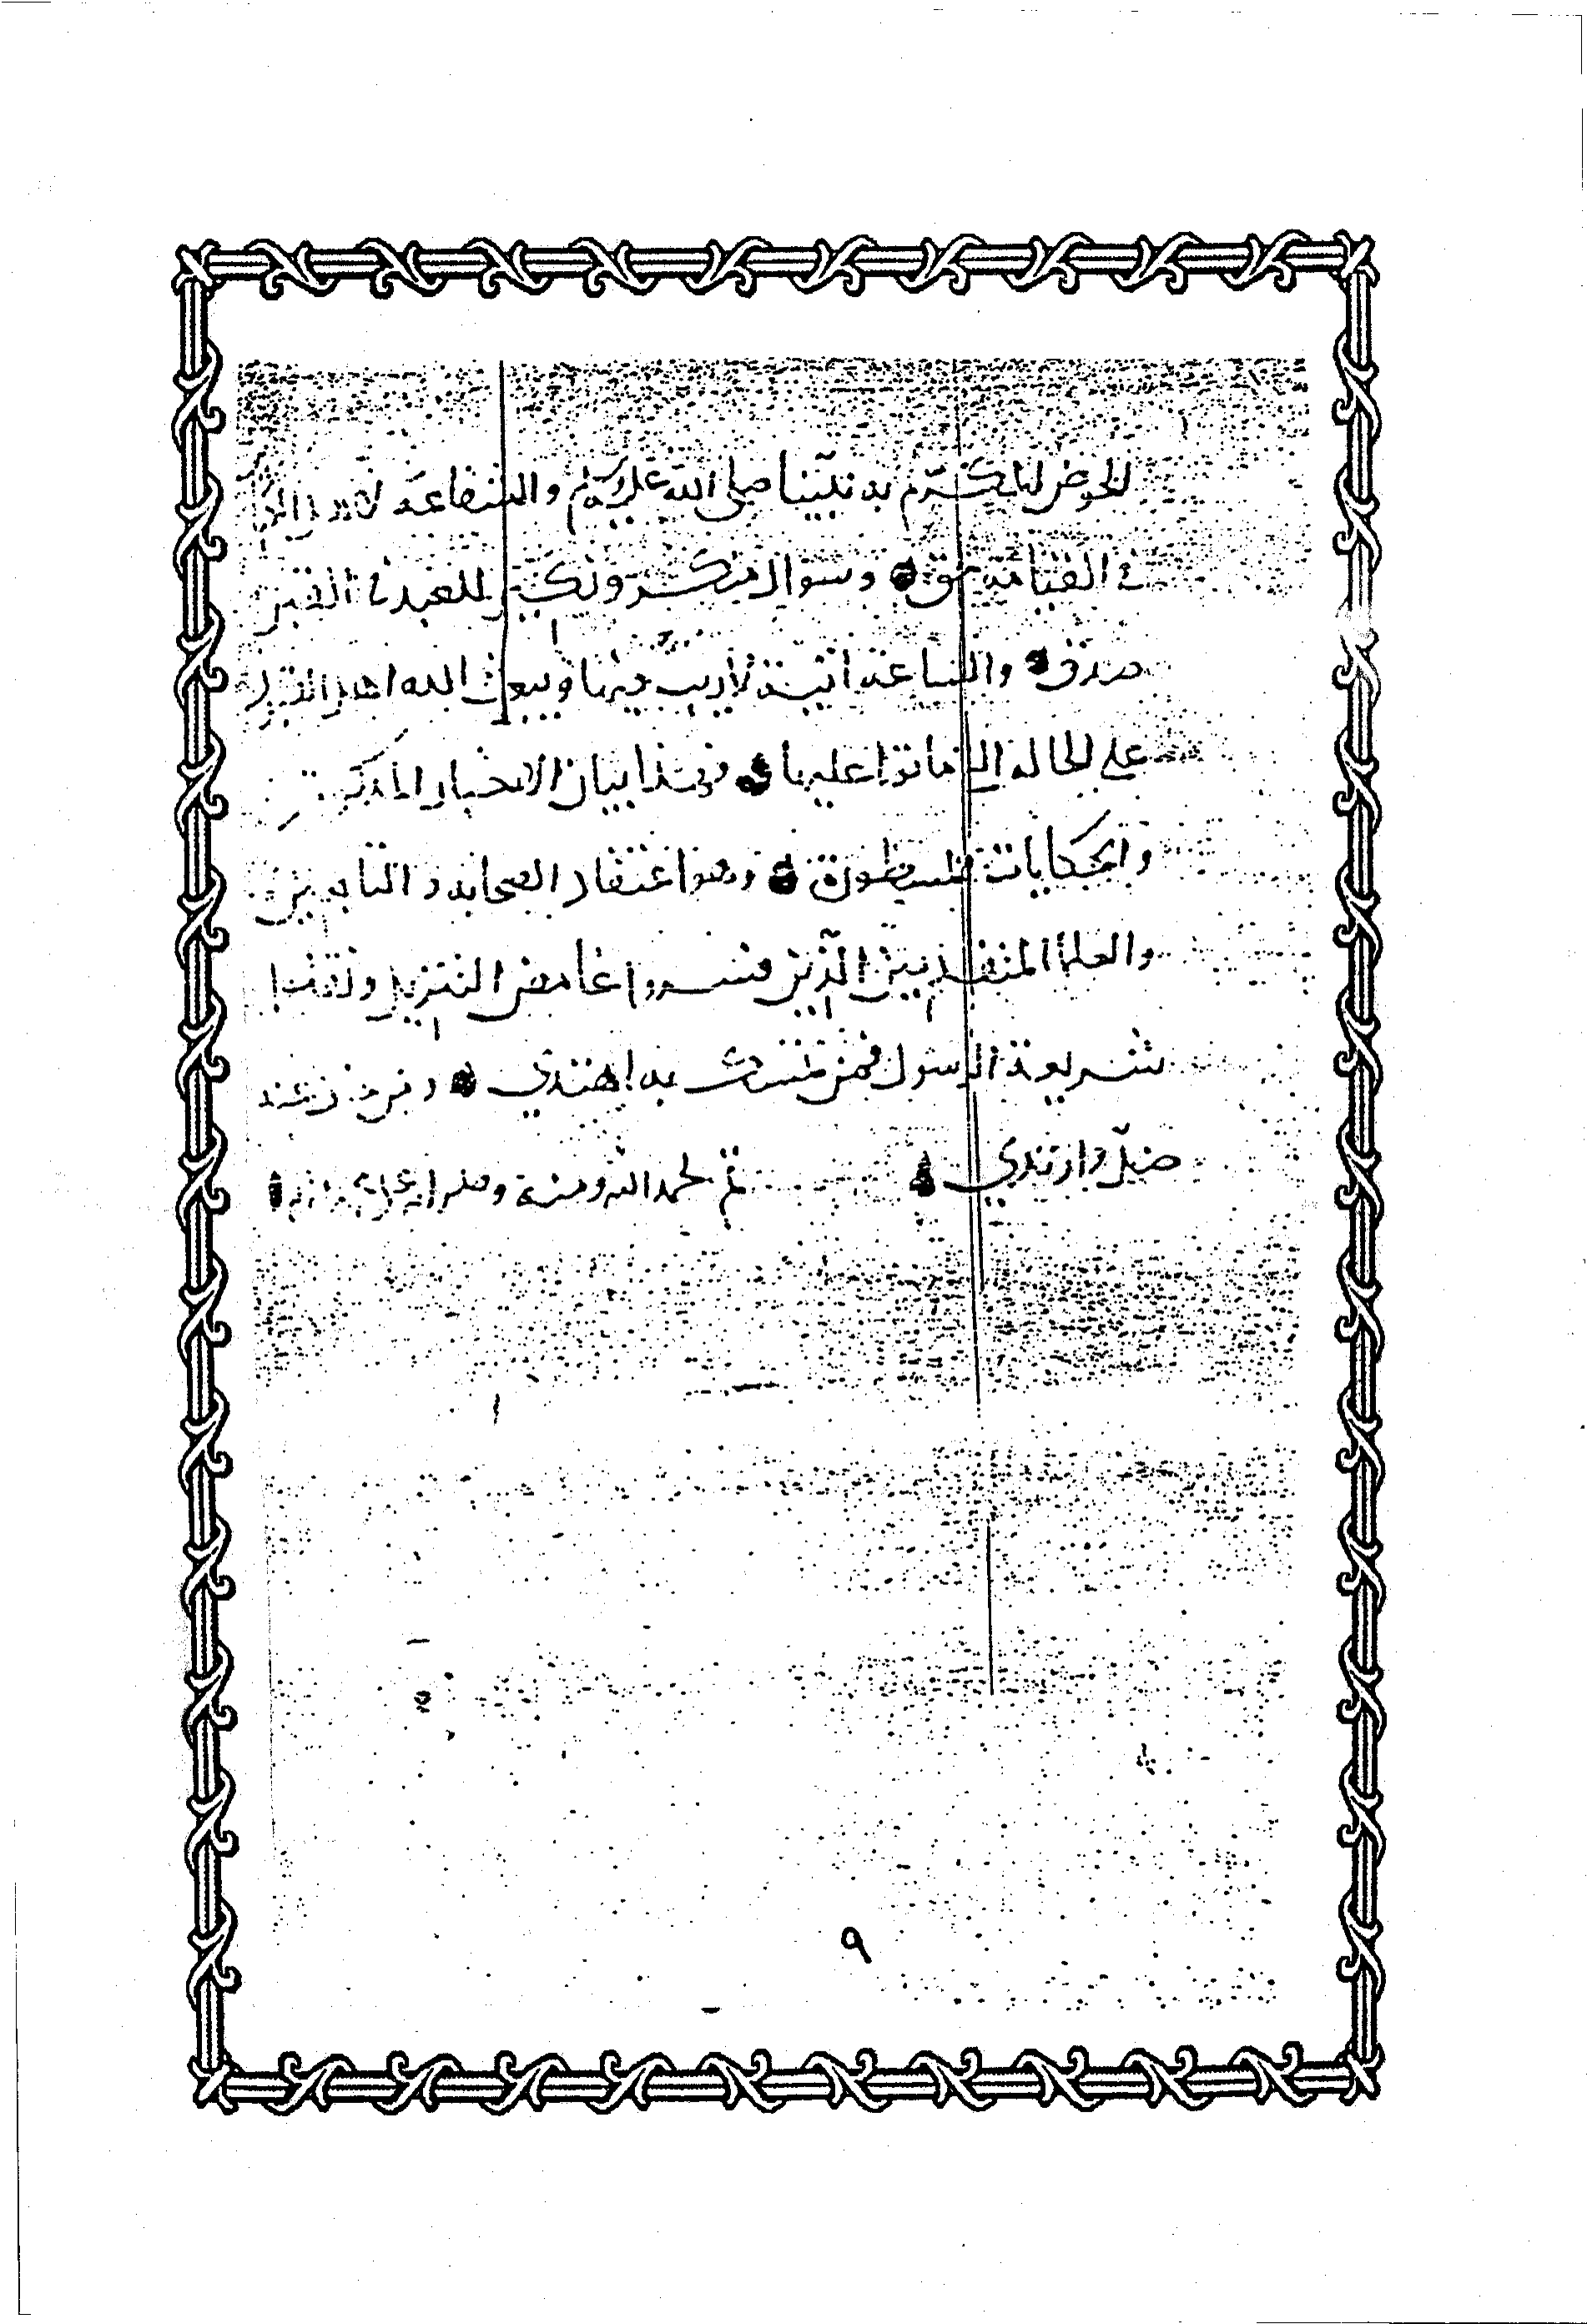 الحوض المكرم به نبينا صلى الله عليه وسلم والشفاعة
في القيامة حق وسوال منكر ونكير للعبد في القبر
صدق والساعة اتية لا ريب فيها ويبعث الله اهل القبور
على الحالة التي ماتوا عليها فهذا بيان الاخبار
والحكايات وهو اعتقاد الصحابة والتابعين
والعلما المتقدمين الذين فسروا غامض التنزيل
شريعة الرسول فمن تمسك به اهتدي ومن عنه
ضل وارتدي تم بحمد الله ومنه
٩